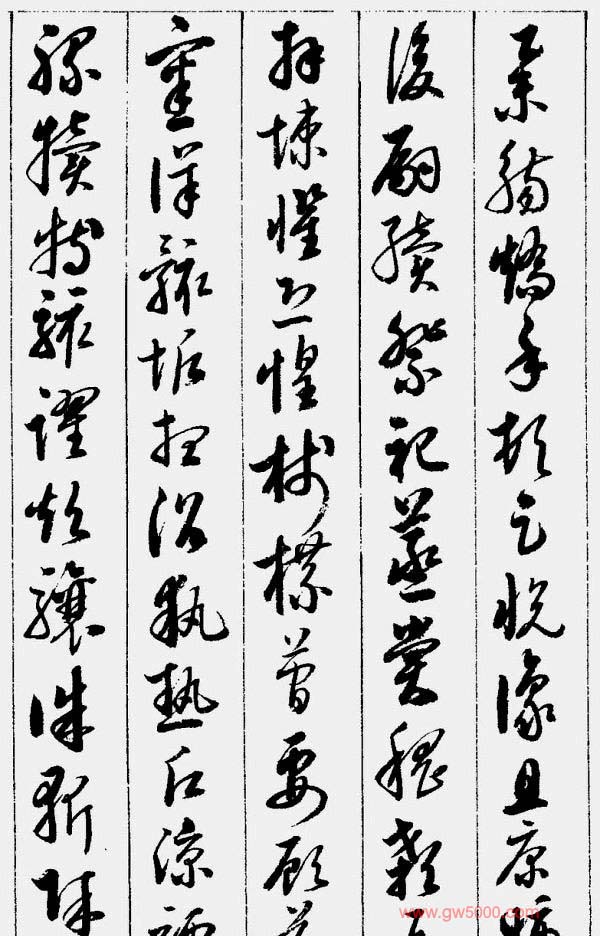 舉觴矯手頓足悅豫且康
後嗣續祭祀蒸嘗稽顙
拜悚懼恐惶牋牒簡要顧
審詳骸垢想浴執熱願涼
騾犢特駭躍超驤誅斬賊
www.gw5000.com